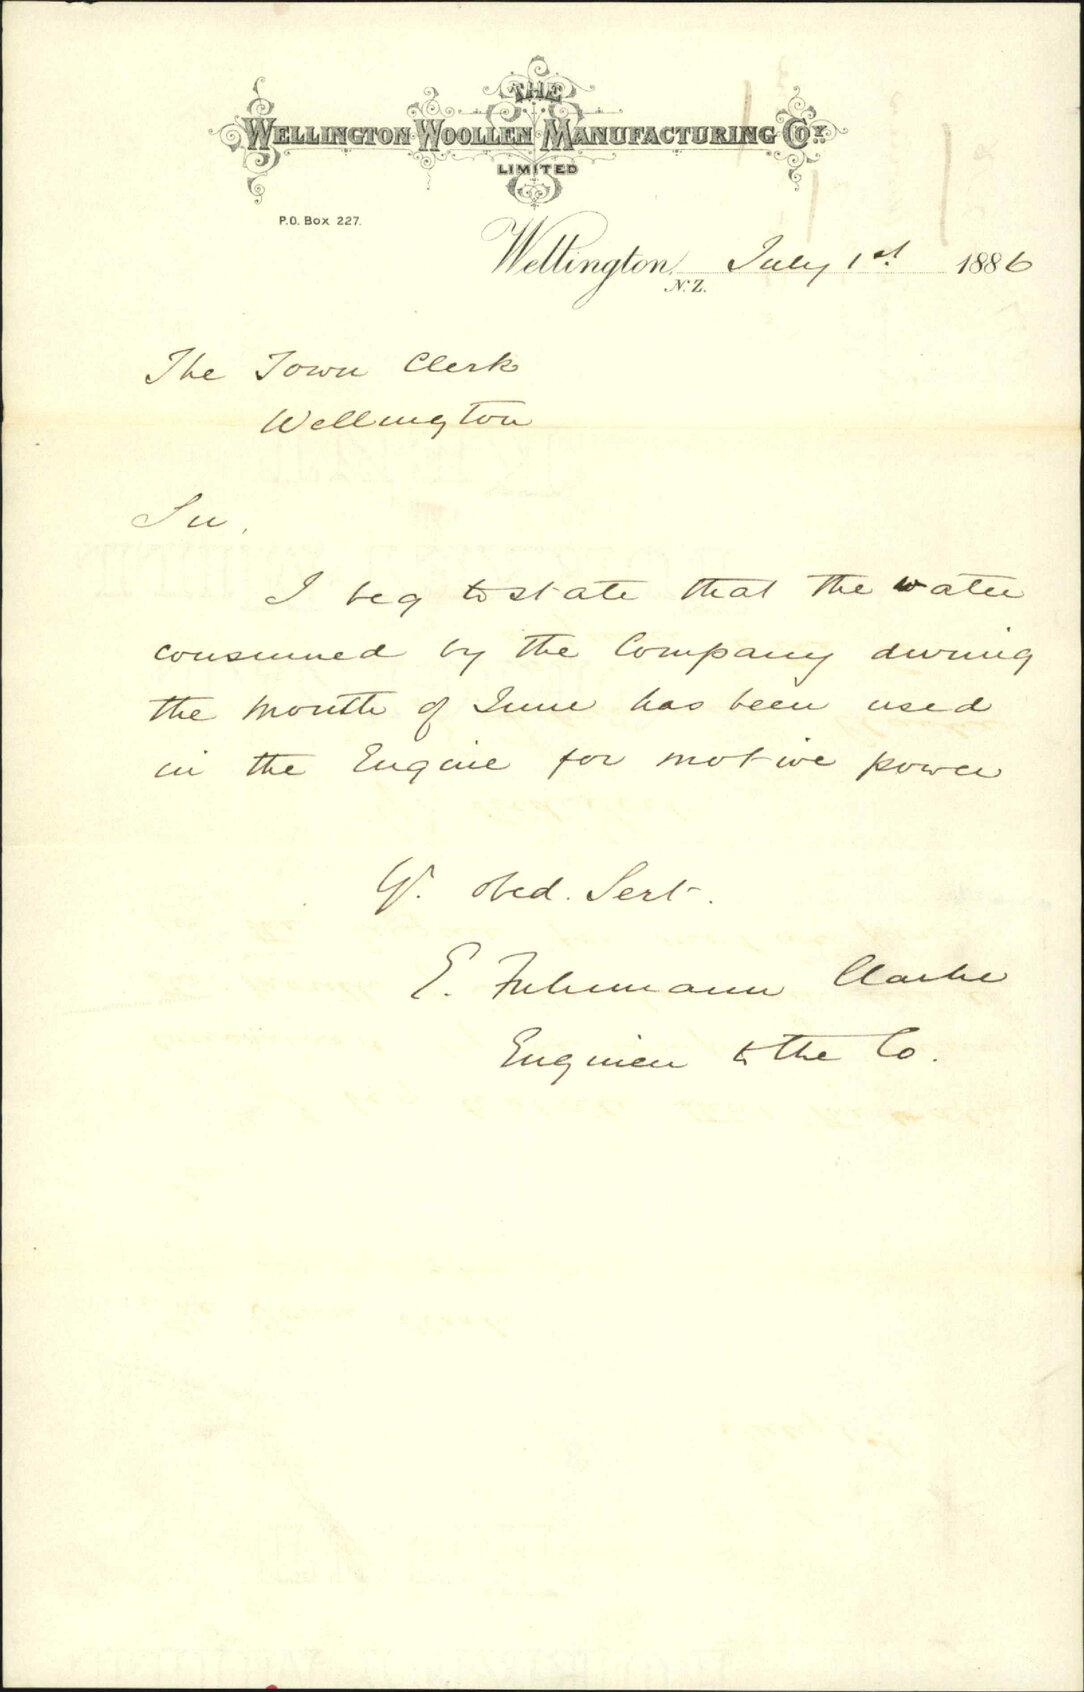 THE
WELLINGTON WOOLLEN MANUFACTURING COY.
LIMITED
P.O. Box 227.
Wellington, N.Z. July 1st. 1886
The Town Clerk
Wellington
Sir,
I beg to state that the water
consumed by the Company during
the month of June has been used
in the Engine for motive power
Yr. obed. Sert.
E. Fuhrmann Clarke
Engineer to the Co.